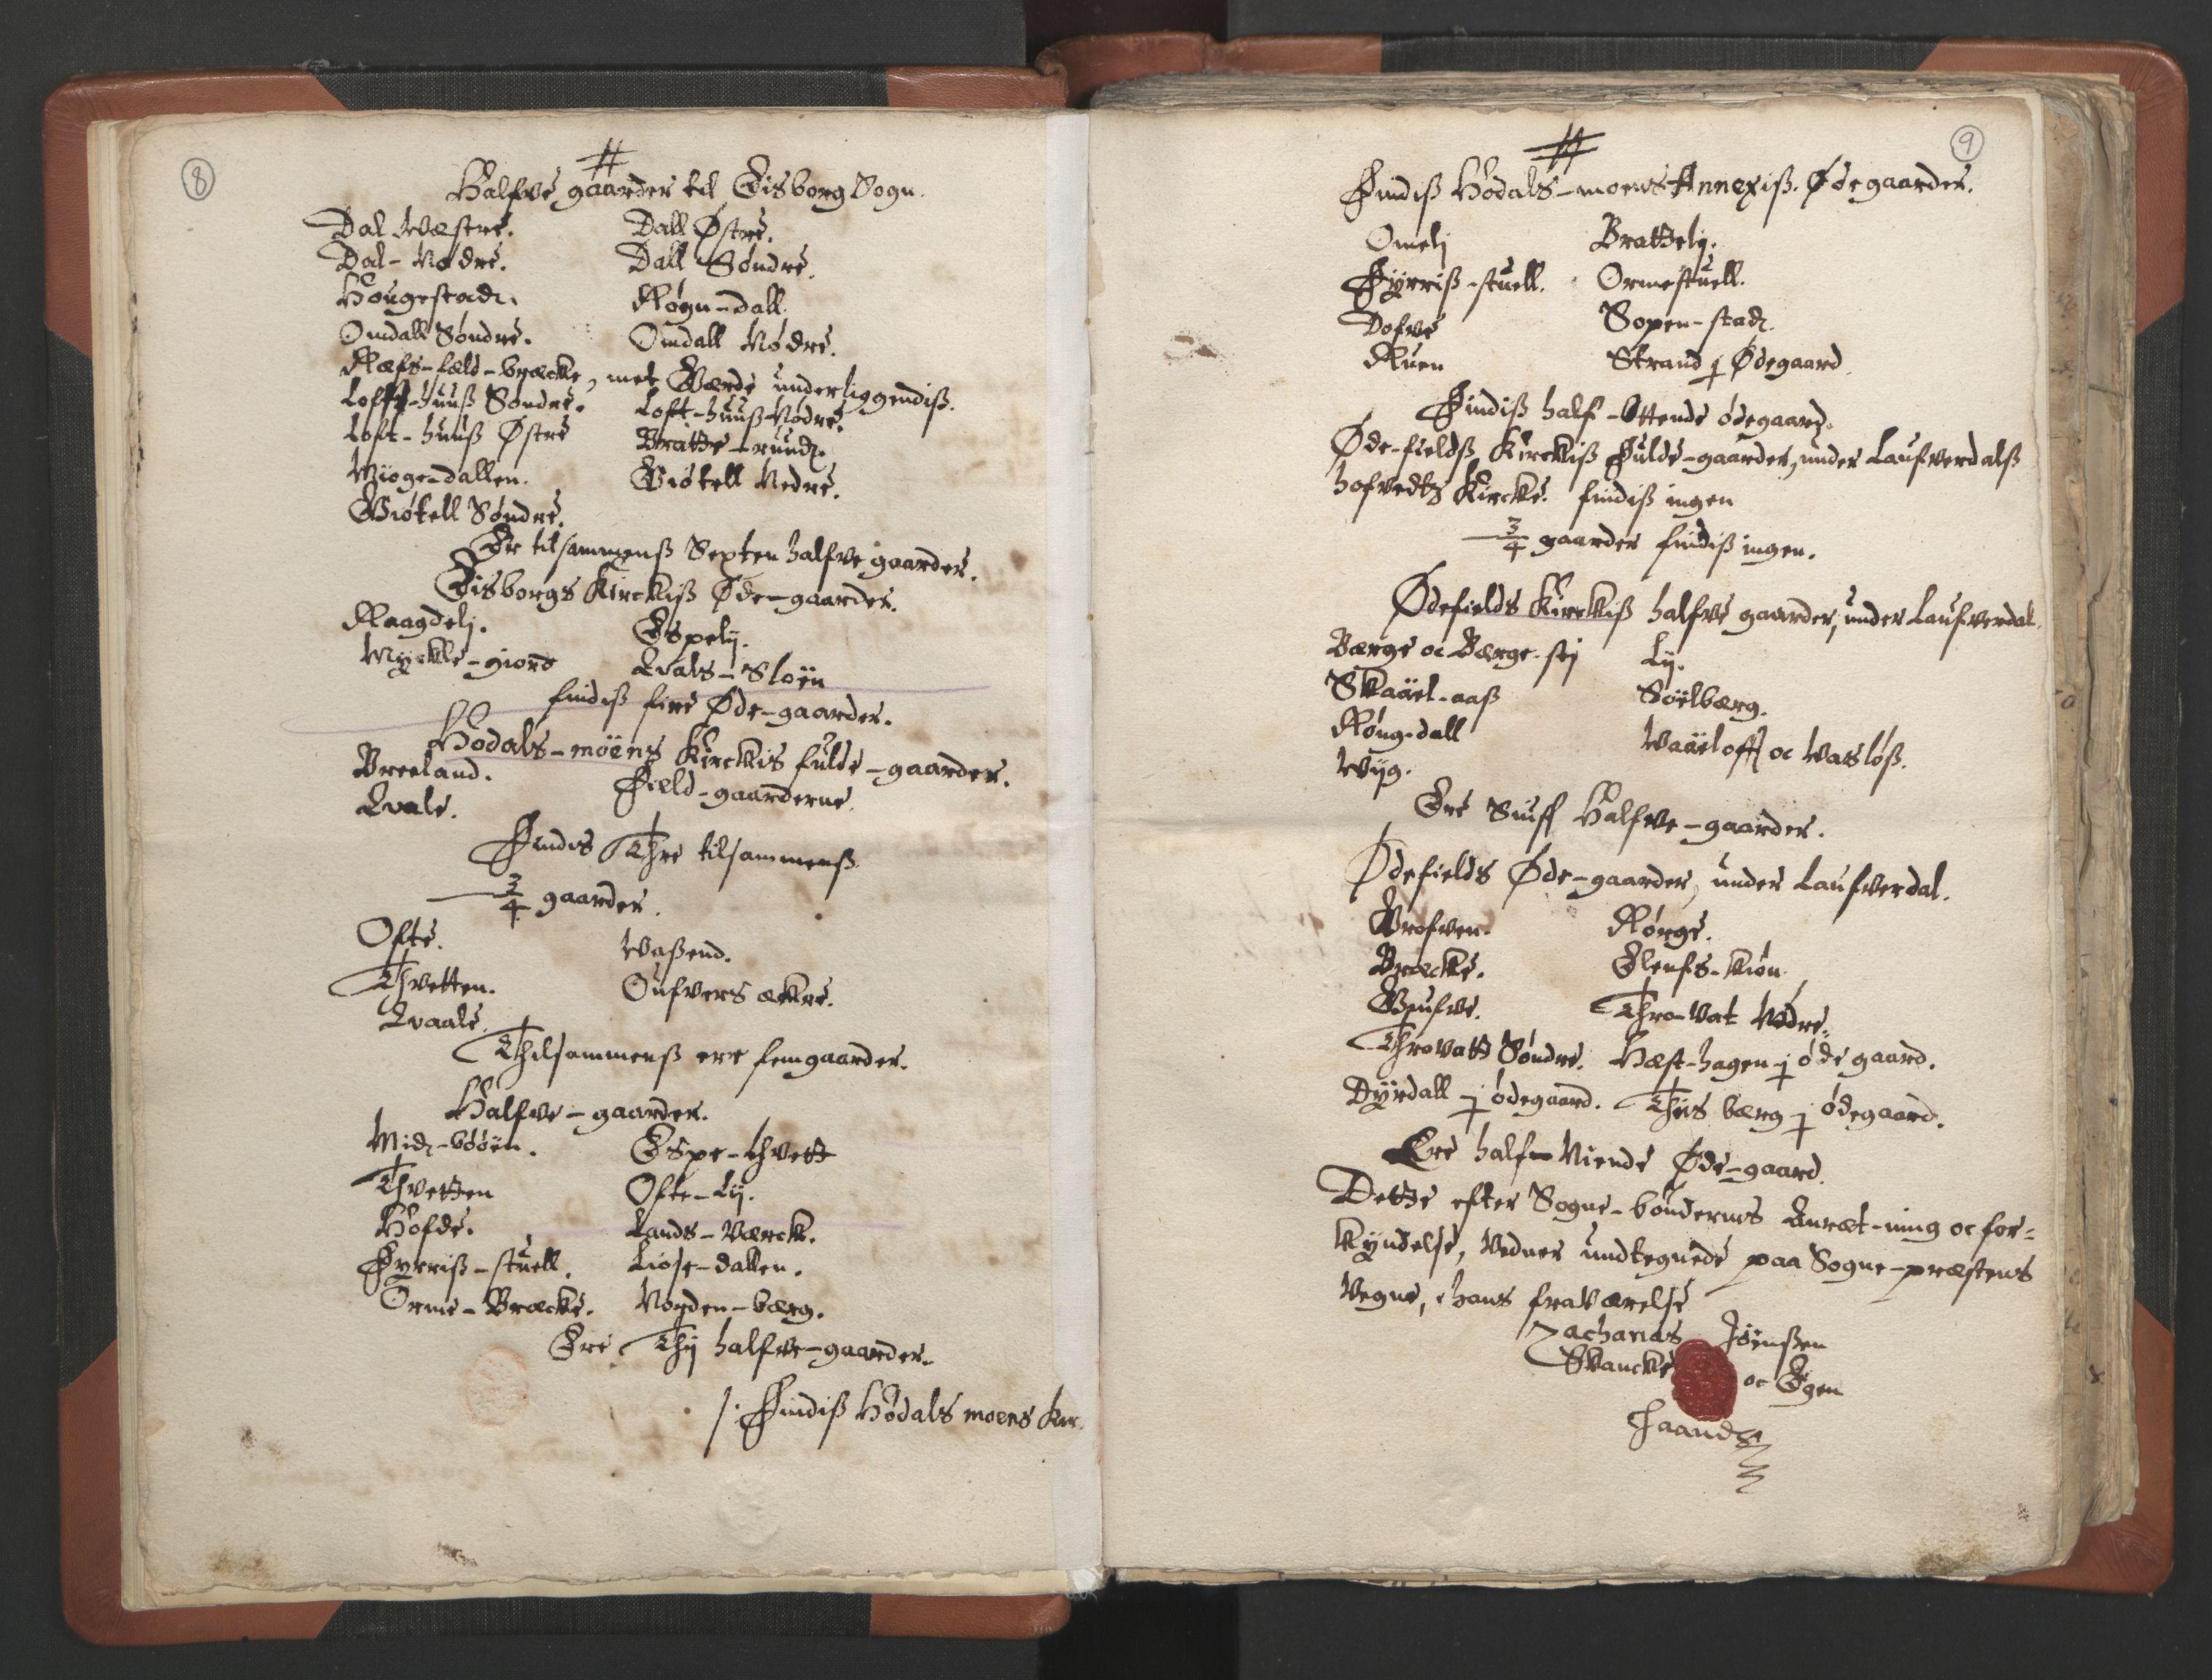 8
Halfve gaarder til Eisborg Sogn.
Dal Wæstre. Dall Østre.
Dal-Nødre. Dall Søndre.
Hougestadt. Røgn-dall.
Omdall Søndre. Omdall Nødre.
Ræfs-fæld-bræcke, met Værde underliggendiß.
Lofft-huuß Søndre. Loft-huuß Nødre.
Loft-huuß Østre Bratte-rundt.
Miøge-dallen. Giøtell Nedre.
Giøtell Søndre.
Er tilsammenß Sexten halfve gaarder.
Eisborgs Kirckiß Øde-gaarder.
Raagdelj. Espelij.
Myckle-giord Qvals-Sloÿn
findiß fire Øde-gaarder.
Hødals-møens Kirckis fulde-gaarder.
Breeland. Field-gaarderne.
Qvale.
Findis Thre tilsammenß
3/4 gaarder.
Ofte. Waßend.
Thvetten. Oufvers ækre.
Qvaale.
Thilsammenß ere fem gaarder.
Halfve-gaarder.
Midt-bøöÿn. Espe-thvett
Thvetten Ofte-Lij.
Høfde. Lands-Værck.
Fyrriß-stuell. Liose-dallen.
Orme-Bræcke. Norden-bærg.
Ere Thij halfve-gaarder.
/: Findiß Hødals moens Kir.
9
Findiß Hødals-moens Annexiß Ødegaarder.
Omelj Brattelij.
Fÿrriß-stuell. Ormestuell.
Dofve Sopen-stadt.
Ruen Strand j Ødegaard.
Findiß half-Ottende ødegaard.
Øde-fieldß Kirckiß Fulde-gaarder, under Laufverdalß
hofvedtz Kircke. findiß ingen
3/4 gaarder findiß ingen.
Ødefields Kirckiß halfve gaarder, under Laufverdal.
Bærge oc Bærge-stj Lij.
Skaäel-aaß Soÿlbærg.
Røng-dall Waäeloft oc Wasløß.
Wÿg.
Ere Siuff Halfve-gaarder.
Ødefields Øde-gaarder, under Laufverdal.
Grofven. Rørge.
Bræcke. Elenfs-kiøn.
Giufve. Thro-Vat Nødre.
Throvatt Søndre. Hæst-hagen j øde gaard.
Dÿrdall j ødegaard. Thiis bærg j ødegaard.
Ere half-Niende Øde-gaard.
Dette efter Sogne-bøndernes Anræt-ning oc for=
Kyndelse, Vedner undtegnede paa Sogne-præstens
Vegne, i hans fraværelse
Zacharias Jøenßen
Skancke oc Egen
Haand